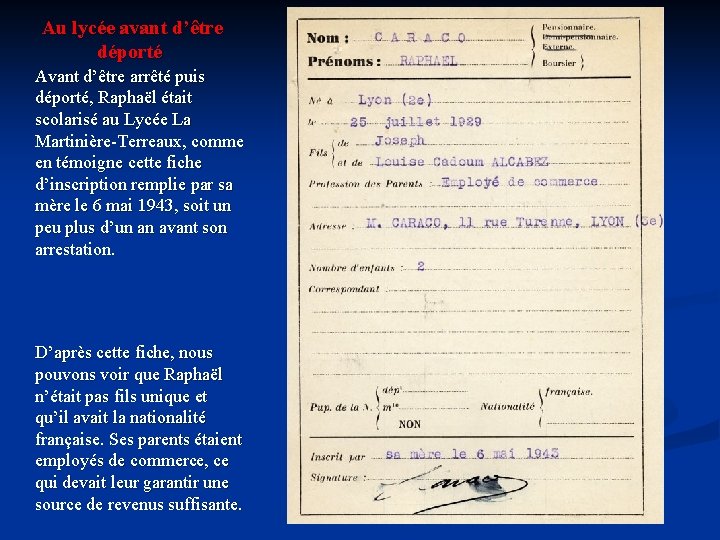 Au lycée avant d’être
déporté
Avant d’être arrêté puis
déporté, Raphaël était
scolarisé au Lycée La
Martinière-Terreaux, comme
en témoigne cette fiche
d’inscription remplie par sa
mère le 6 mai 1943, soit un
peu plus d’un an avant son
arrestation.
D’après cette fiche, nous
pouvons voir que Raphaël
n’était pas fils unique et
qu’il avait la nationalité
française. Ses parents étaient
employés de commerce, ce
qui devait leur garantir une
source de revenus suffisante.
Nom : CARACO
Prénoms : RAPHAEL
Pensionnaire.
Demi-pensionnaire.
Externe.
Boursier
Né à Lyon (2e)
le 25 juillet 1929
Fils de Joseph
et de Louise Cadoum ALCABEZ
Profession des Parents : Employé de commerce
Adresse : M. CARACO, 11 rue Turenne, LYON (3e)
Nombre d'enfants : 2
Correspondant
Pup. de la N. dépt
mle
NON
Nationalité française.
Inscrit par sa mère le 6 mai 1943
Signature : Caraco